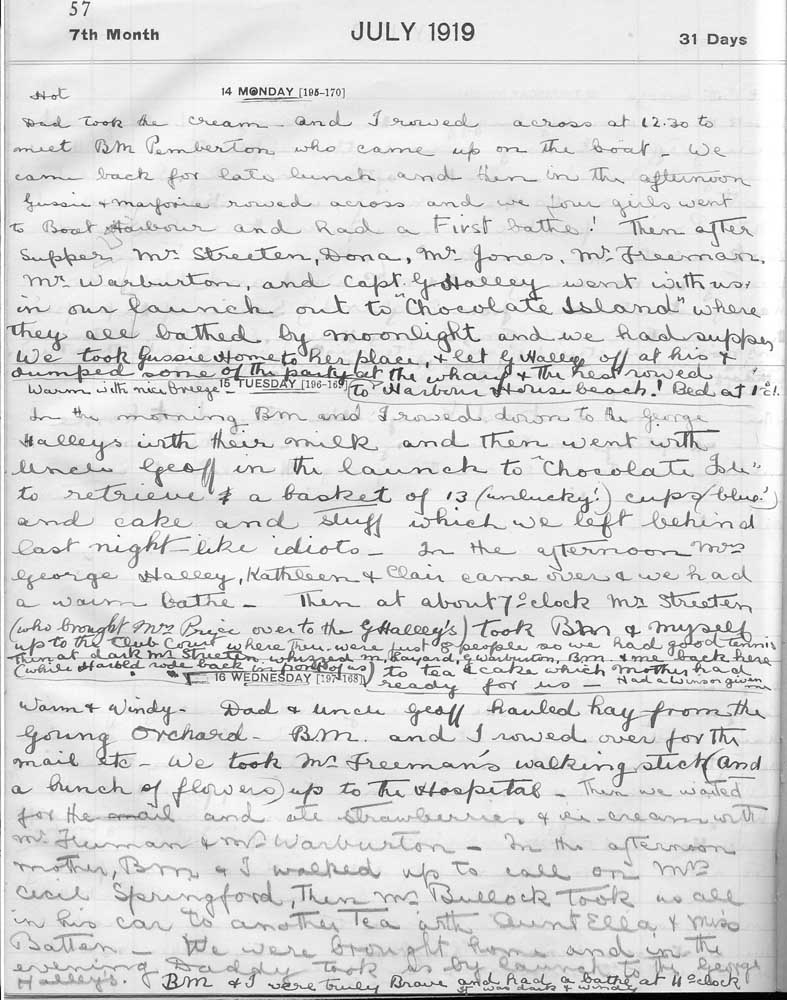 57
7th Month JULY 1919 31 Days
Hot 14 MONDAY [195-170]
Dad took the cream - and I rowed across at 12.30 to
meet BM Pemberton who came up on the boat - We
came back for late lunch and then in the afternoon
Gussie & Marjorie rowed across and we four girls went
to Boat Harbour and had a First bathe! Then after
supper Mr Streeten, Dona, Mr Jones, Mr Freeman,
Mr Warburton, and Capt. G Halley went with us
in our launch out to "Chocolate Island" where
they all bathed by moonlight and we had supper
We took Gussie Home to her place, & let G Halley off at his &
dumped some of the party at the wharf & the rest rowed
to Harbour House beach! Bed at 1 o'cl.
Warm with nice breeze - 15 TUESDAY [196-169]
In the morning BM and I rowed down to the George
Halleys with their milk and then went with
Uncle Geoff in the launch to "Chocolate Isle"
to retrieve a basket of 13 (unlucky!) cups (blue!)
and cake and stuff which we left behind
last night - like idiots - In the afternoon Mrs
George Halley, Kathleen & Clair came over & we had
a warm bathe - Then at about 7 o'clock Mr Streeten
(who brought Mrs Price over to the G Halley's) took BM & myself
up to the Club Court where there were just 8 people so we had good tennis
Then at dark Mr Streeten whizzed M. Layard, G Warburton, BM & me back here
(while Harold rode back in front of us) to tea & cake which Mother had
ready for us - Had a Winsor given me
16 WEDNESDAY [197-168]
Warm & Windy - Dad & Uncle Geoff hauled hay from the
Young Orchard - B.M. and I rowed over for the
mail etc - We took Mr Freeman's walking stick (and
a bunch of flowers) up to the Hospital - Then we waited
for the mail and ate strawberries & ice-cream with
Mr Freeman & Mr Warburton - In the afternoon
Mother, BM & I walked up to call on Mrs
Cecil Springford, Then Mr Bullock took us all
in his car to another Tea with Aunt Ella & Miss
Batten - We were brought home and in the
evening Daddy took us by launch to the George
Halley's. BM & I were truly Brave and had a bathe at 11 o'clock
It was dark & windy